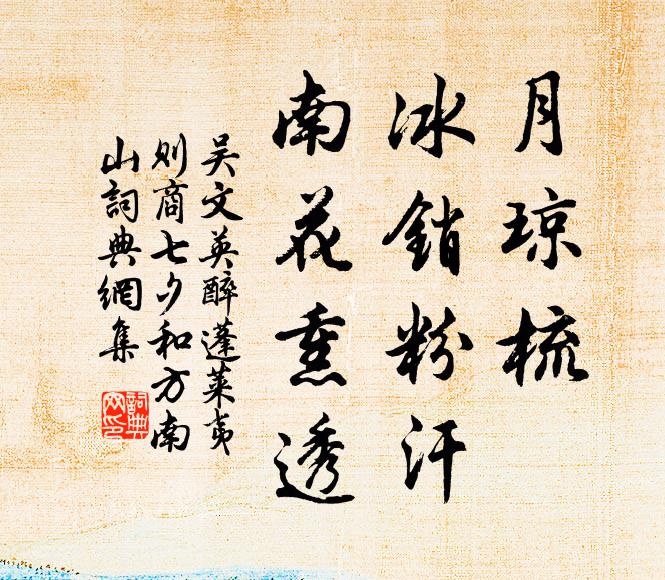 月琼梳
冰銷粉汗
南花熏透
吴文英醉蓬莱夷
则商七夕和方南
山詞典網集
詞典
网印